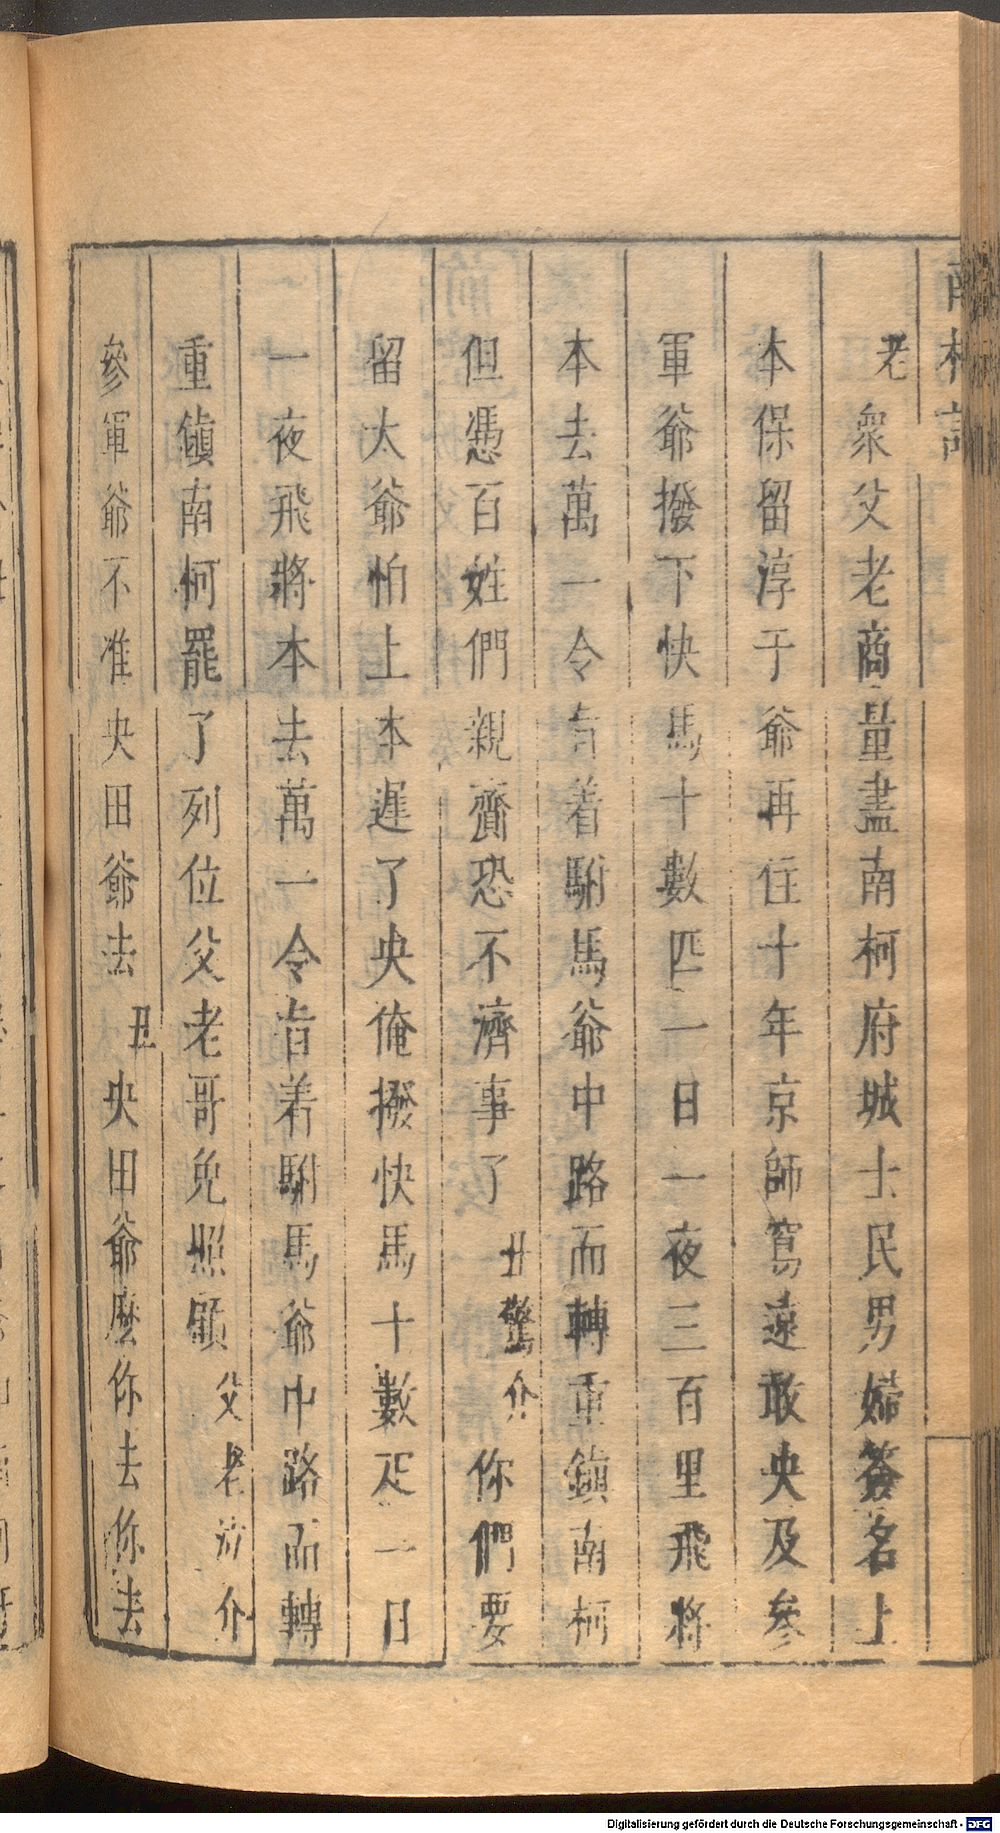 南柯記
老衆父老商量盡南柯府城士民男婦簽名上
本保留淳于爺再住十年京師寫遠敢央及參
軍爺撥下快馬十數匹一日一夜三百里飛將
本去萬一令旨着駙馬爺中路而轉重鎮南柯
但憑百姓們親齎恐不濟事了丑驚介你們要
留太爺怕上本遲了央俺撥快馬十數疋一日
一夜飛將本去萬一令旨着駙馬爺中路而轉
重鎮南柯罷了列位父老哥免照顧父老泣介
參軍爺不准央田爺去丑央田爺麼你去你去
Digitalisierung gefördert durch die Deutsche Forschungsgemeinschaft - DFG